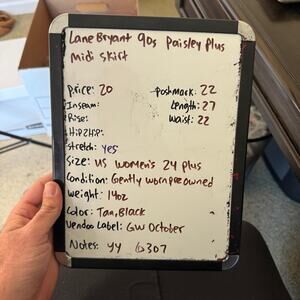 Lane Bryant 90s Paisley Plus
Midi Skirt
Price: 20
Poshmark: 22
Inseam:
Length: 27
Rise:
Waist: 22
Hip 2 Hip:
Stretch: yes
Size: US Women's 24 Plus
Condition: Gently worn preowned
Weight: 14oz
Color: Tan, Black
Vendoo Label: GW October
Notes: YY